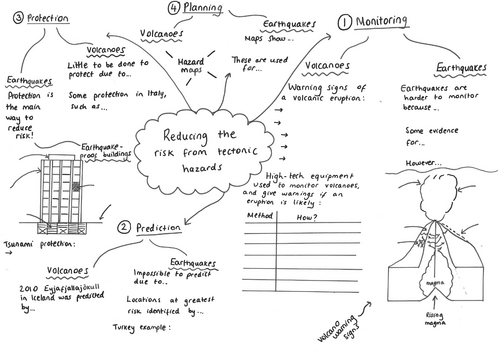 ③ Protection
Volcanoes
Little to be done to
protect due to...
Some protection in Italy,
such as...
Earthquakes
Protection is
the main
way to
reduce
risk!
Earthquake-
proof buildings
Tsunami protection:
→
④ Planning
Volcanoes
Hazard
maps
Earthquakes
Maps show...
These are used
for...
① Monitoring
Volcanoes
Warning signs of
a volcanic eruption:
→
→
→
→
→
High-tech equipment
used to monitor volcanoes,
and give warnings if an
eruption is likely:
Method How?
Earthquakes
Earthquakes are
harder to monitor
because...
Some evidence
for...
However...
magma
Rising
magma
Volcano
warning
signs
Reducing the
risk from tectonic
hazards
② Prediction
Volcanoes
2010 Eyjafjallajökull
in Iceland was predicted
by...
Earthquakes
Impossible to predict
due to..
Locations at greatest
risk identified by...
Turkey example: